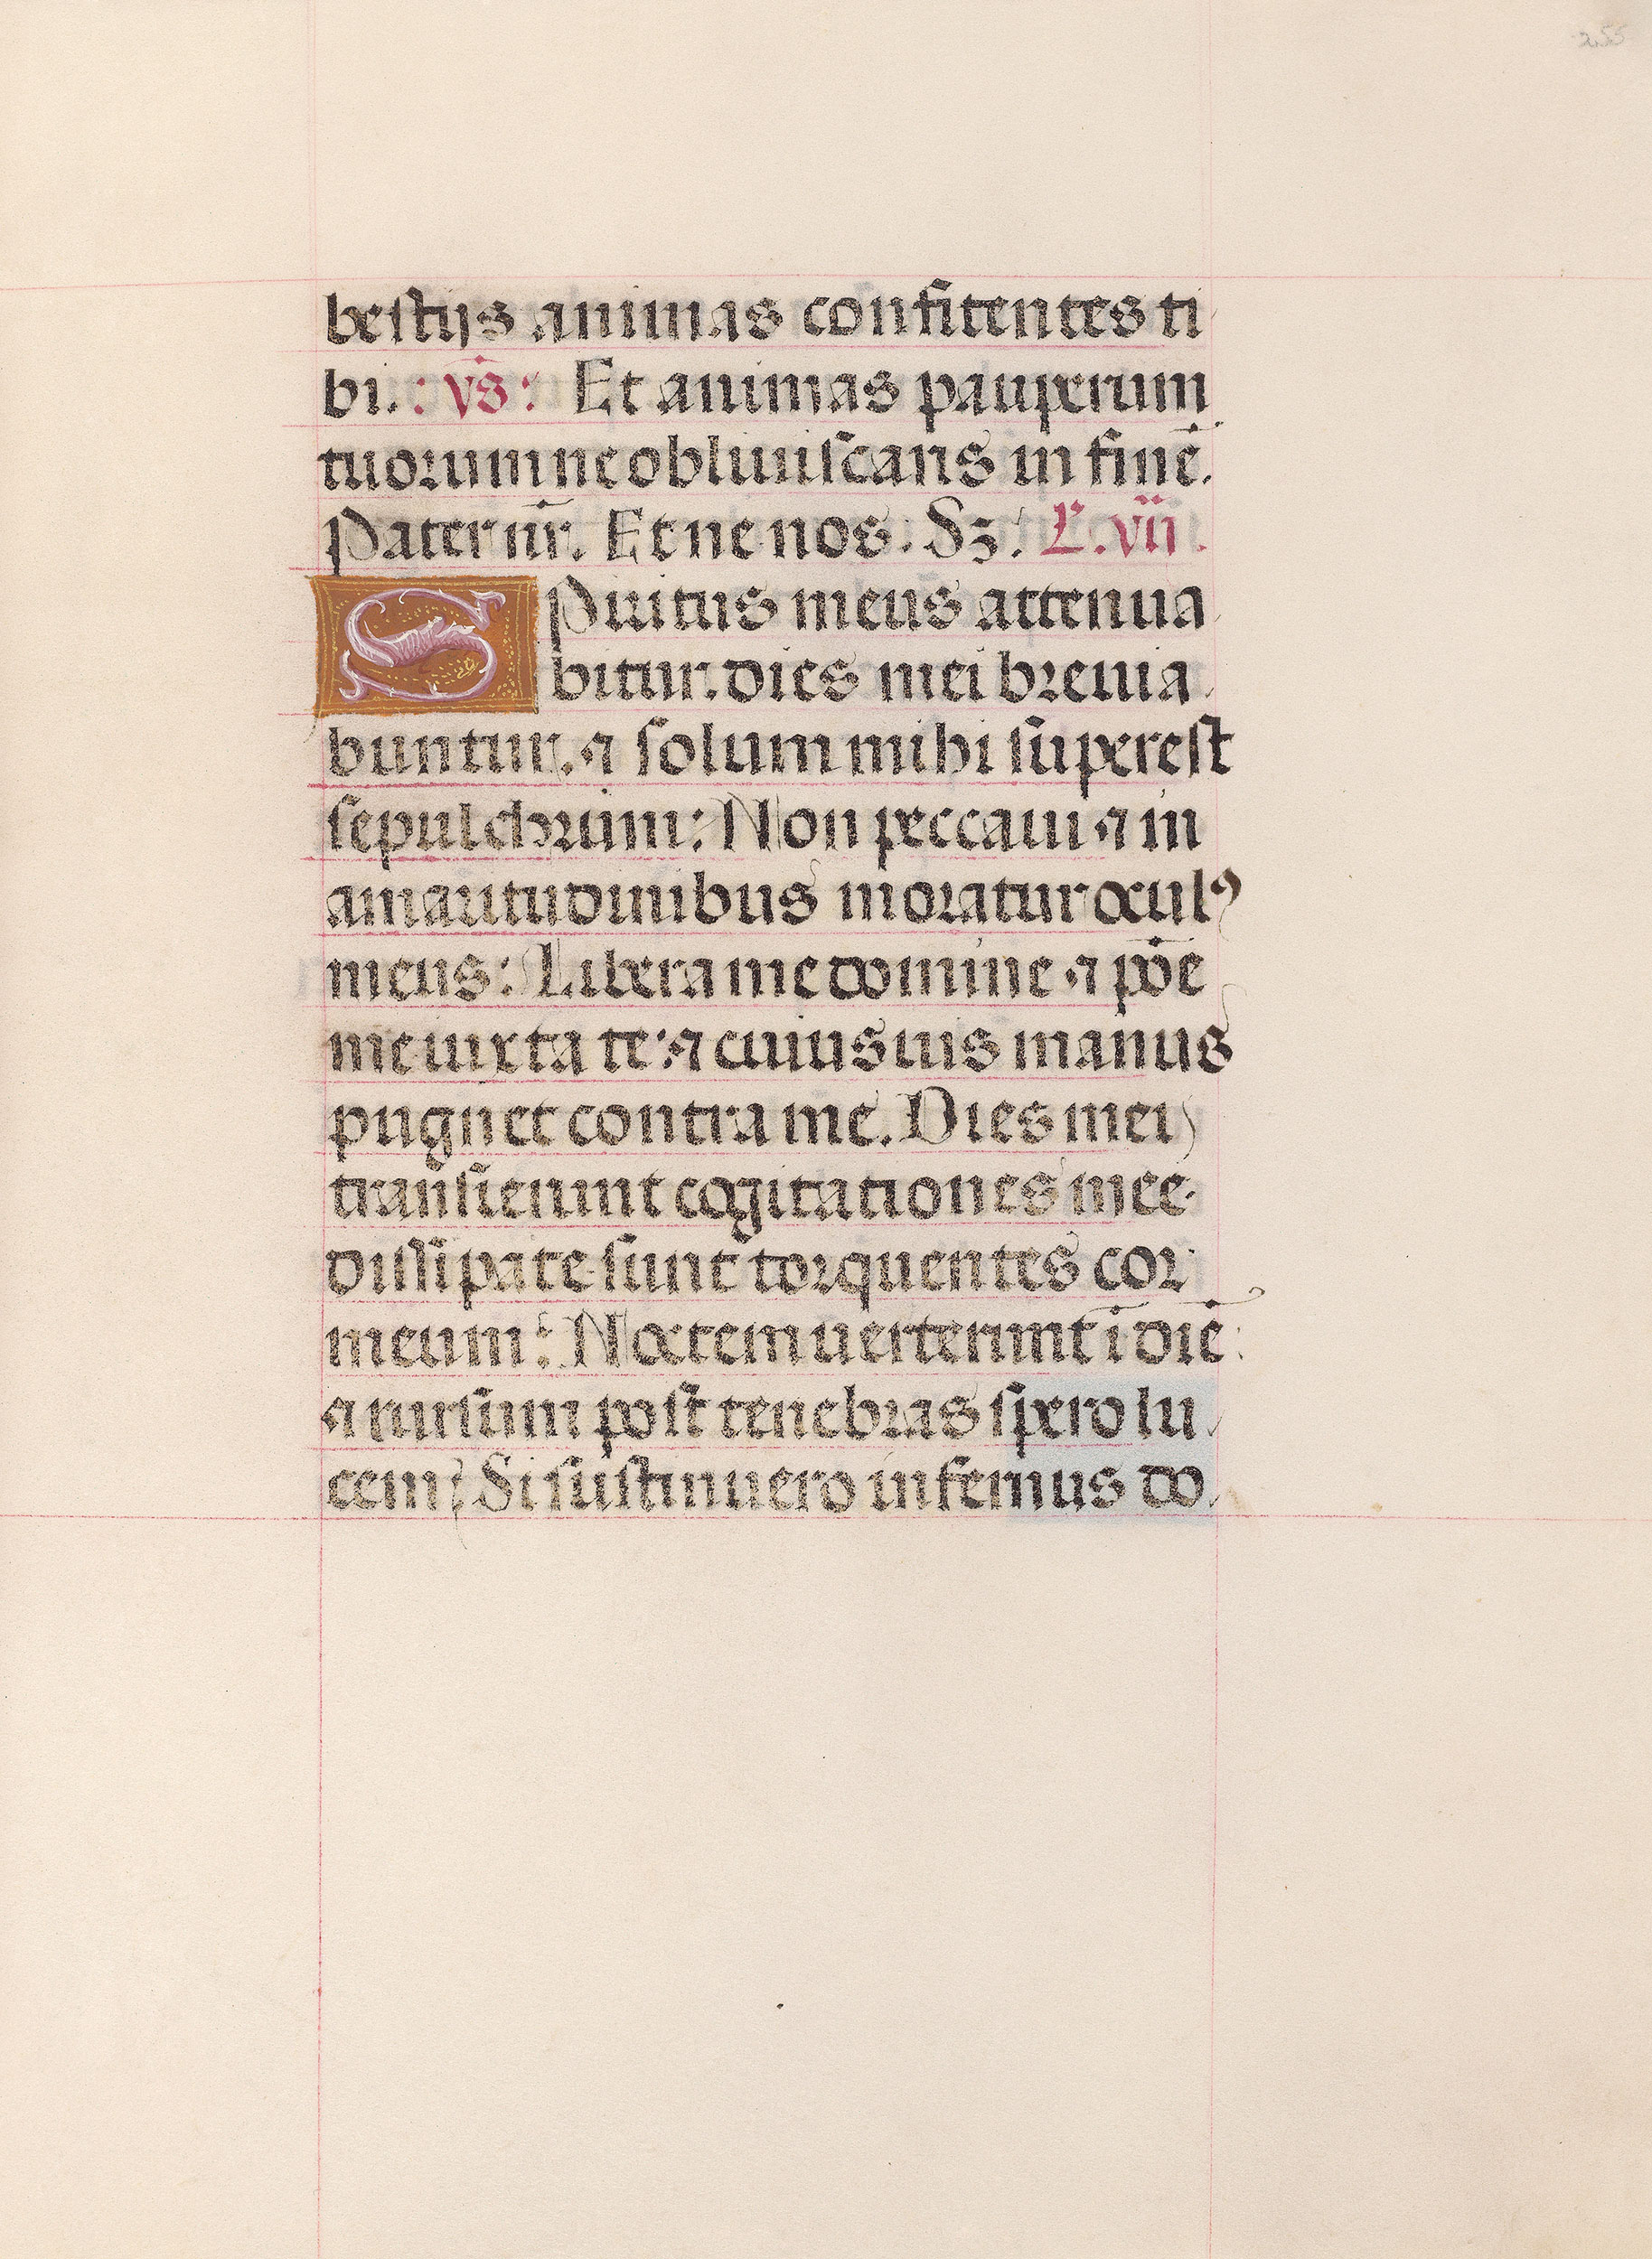 255
bestijs animas confitentes ti
bi. : vs̄ : Et animas pauperum
tuorum ne obliuiscaris in finē.
Pater nr̄. Et ne nos. Sz. L. vii.
SPiritus meus attenua
bitur. dies mei breuia
buntur. ⁊ solum mihi superest
sepulchrum: Non peccaui ⁊ in
amaritudinibus moratur oculꝰ
meus: Libera me domine ⁊ pōe
me iuxta te: ⁊ cuiusuis manus
pugnet contra me. Dies mei
transierunt cogitationes mee
dissipate sunt torquentes cor
meum: Noctem uerterunt ī diē:
⁊ rursum post tenebras spero lu
cem: Si sustinuero infernus do